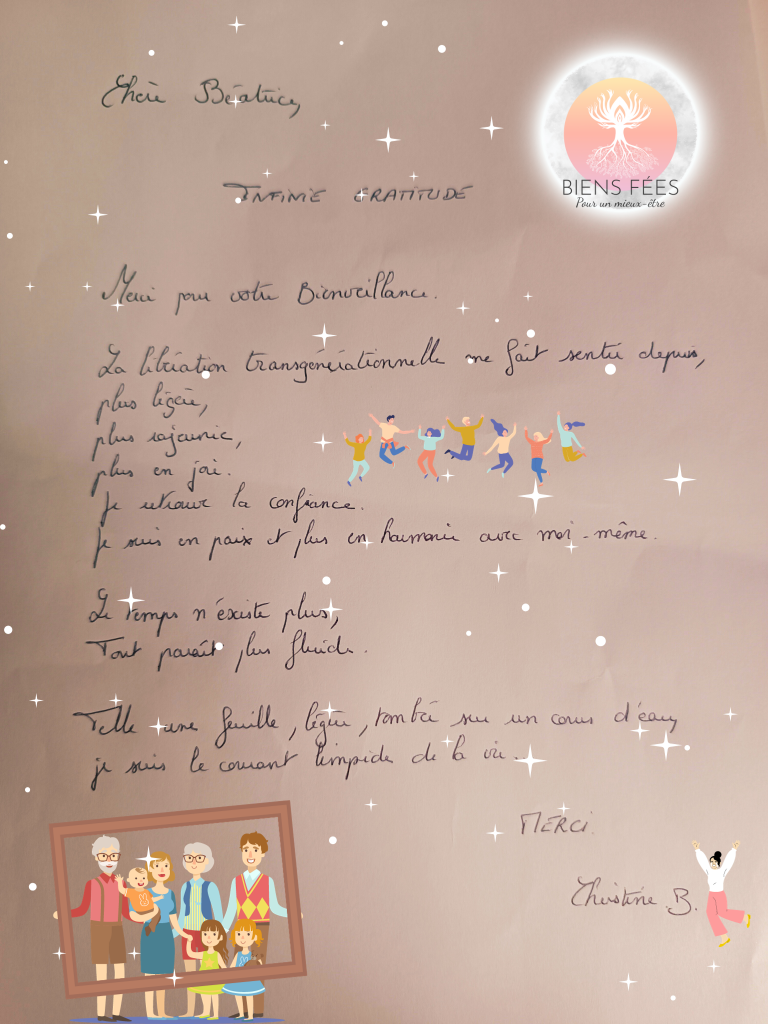 Chère Béatrice,
BIENS FÉES
Pour un mieux-être
INFINIE GRATITUDE
Merci pour votre Bienveillance.
La libération transgénérationnelle me fait sentir depuis,
plus légère,
plus rajeunie,
plus en joie.
Je retrouve la confiance.
Je suis en paix et plus en harmonie avec moi-même.
Le temps n'existe plus,
Tout paraît plus fluide.
Telle une feuille, légère, tombée sur un cours d'eau,
je suis le courant limpide de la vie.
MERCI.
Christine B.